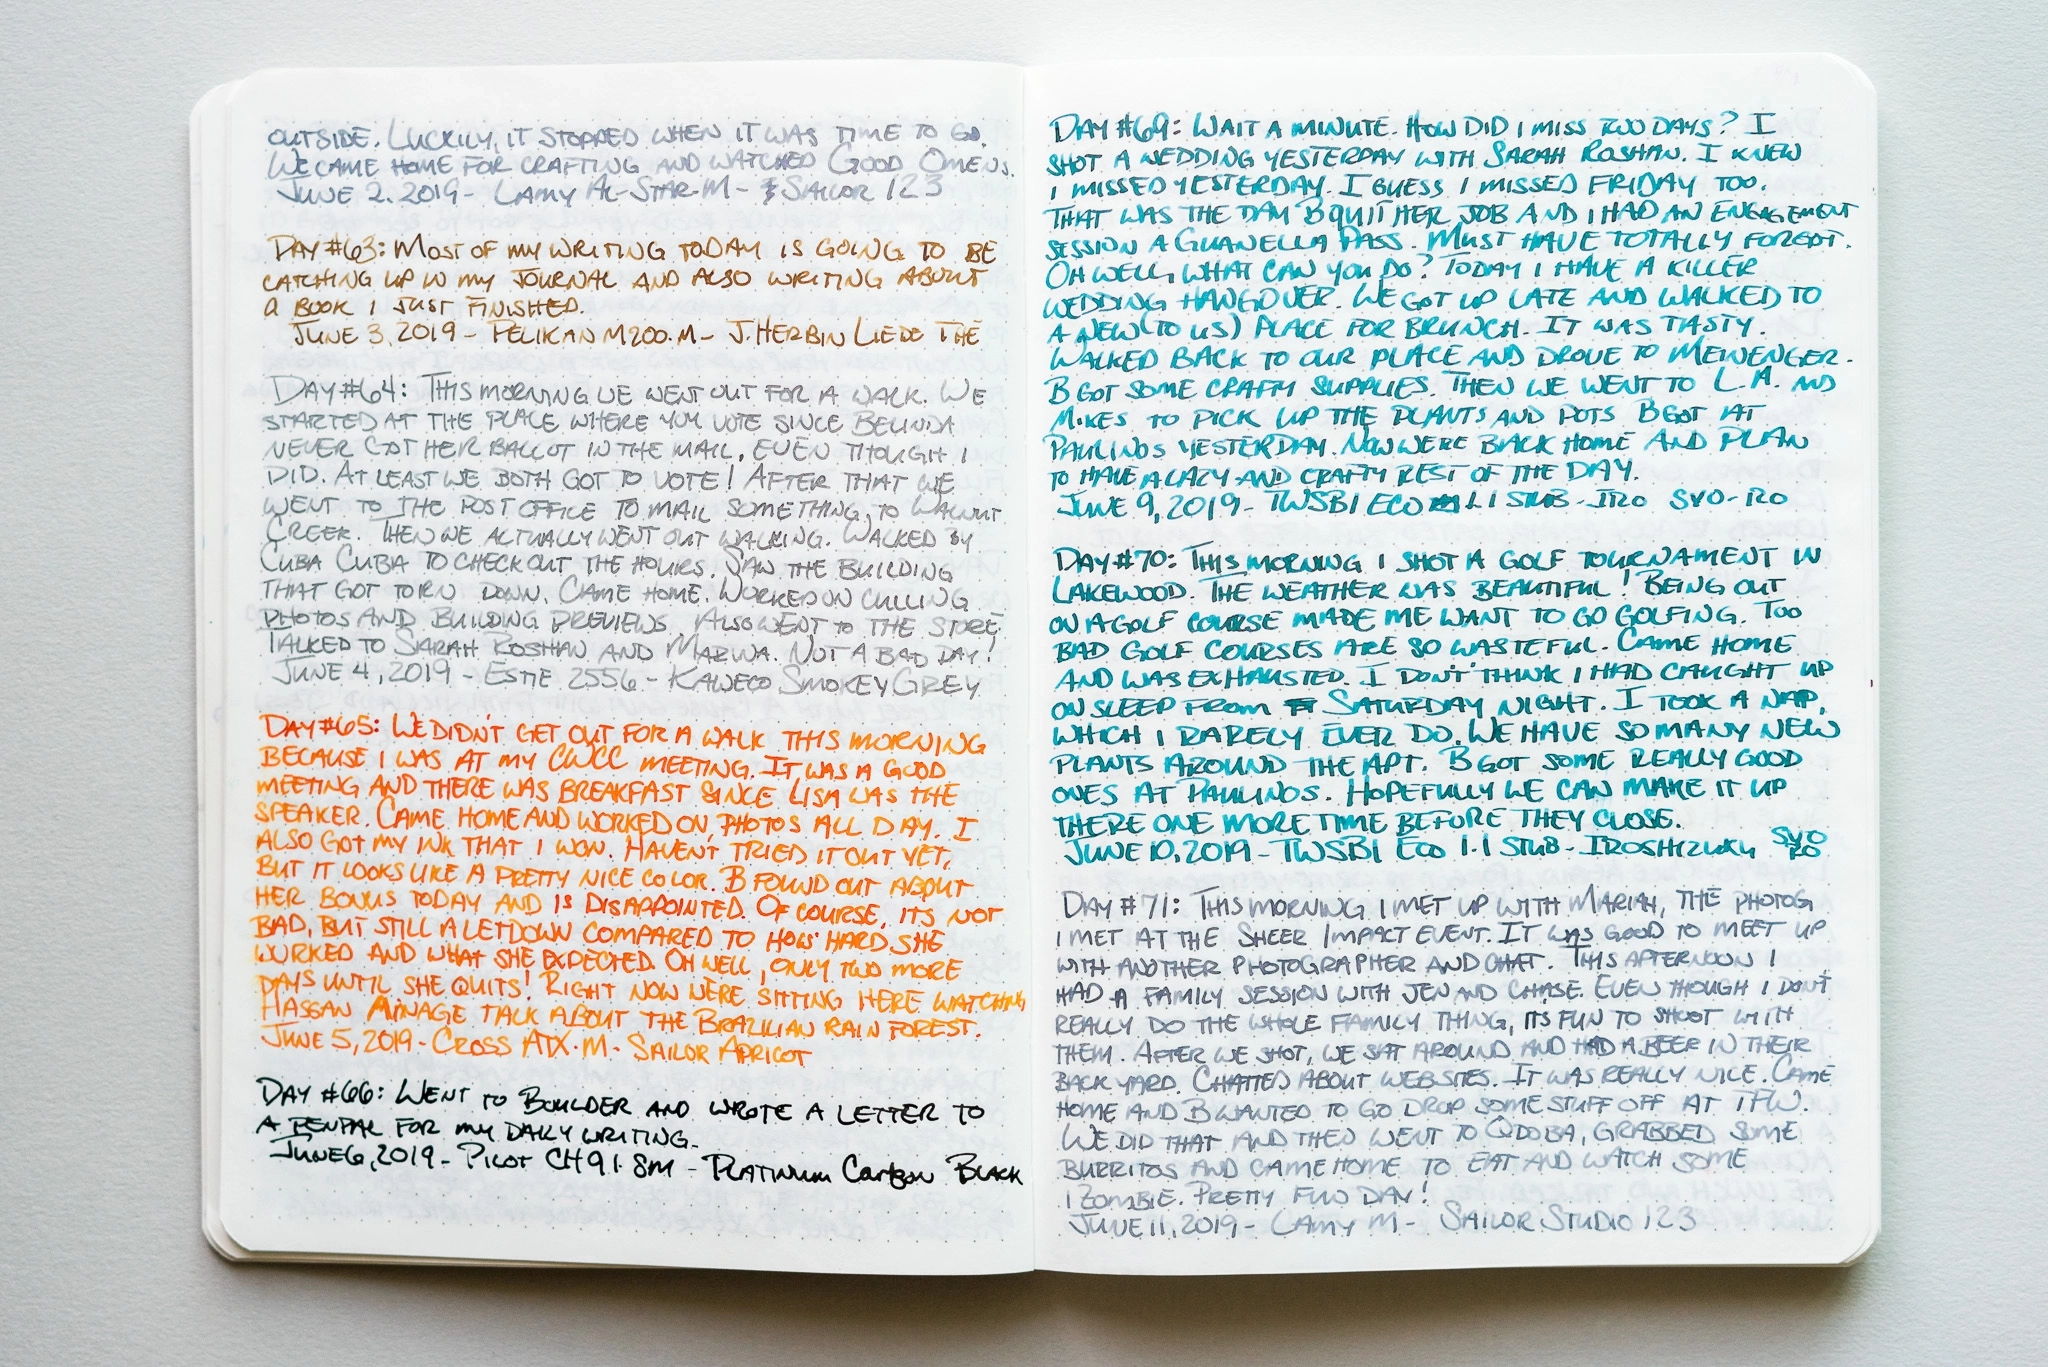 OUTSIDE. LUCKILY, IT STOPPED WHEN IT WAS TIME TO GO.
WE CAME HOME FOR CRAFTING AND WATCHED GOOD OMENS.
JUNE 2, 2019 - LAMY AL-STAR·M - SAILOR 123
DAY #63: MOST OF MY WRITING TODAY IS GOING TO BE
CATCHING UP IN MY JOURNAL AND ALSO WRITING ABOUT
A BOOK I JUST FINISHED.
JUNE 3, 2019 - PELIKAN M200·M - J. HERBIN LIEDE THE
DAY #64: THIS MORNING WE WENT OUT FOR A WALK. WE
STARTED AT THE PLACE WHERE YOU VOTE SINCE BELINDA
NEVER GOT HER BALLOT IN THE MAIL, EVEN THOUGH I
DID. AT LEAST WE BOTH GOT TO VOTE! AFTER THAT WE
WENT TO THE POST OFFICE TO MAIL SOMETHING TO WALNUT
CREEK. THEN WE ACTUALLY WENT OUT WALKING. WALKED BY
CUBA CUBA TO CHECK OUT THE HOURS. SAW THE BUILDING
THAT GOT TORN DOWN. CAME HOME. WORKED ON CULLING
PHOTOS AND BUILDING PREVIEWS. ALSO WENT TO THE STORE.
TALKED TO SARAH ROSHAN AND MARWA. NOT A BAD DAY!
JUNE 4, 2019 - ESTIE 2556 - KAWECO SMOKEY GREY
DAY #65: WE DIDN'T GET OUT FOR A WALK THIS MORNING
BECAUSE I WAS AT MY CWCC MEETING. IT WAS A GOOD
MEETING AND THERE WAS BREAKFAST SINCE LISA WAS THE
SPEAKER. CAME HOME AND WORKED ON PHOTOS ALL DAY. I
ALSO GOT MY INK THAT I WON. HAVEN'T TRIED IT OUT YET,
BUT IT LOOKS LIKE A PRETTY NICE COLOR. B FOUND OUT ABOUT
HER BONUS TODAY AND IS DISAPPOINTED. OF COURSE, IT'S NOT
BAD, BUT STILL A LETDOWN COMPARED TO HOW HARD SHE
WORKED AND WHAT SHE EXPECTED. OH WELL, ONLY TWO MORE
DAYS UNTIL SHE QUITS! RIGHT NOW WE'RE SITTING HERE WATCHING
HASSAN MINAGE TALK ABOUT THE BRAZILIAN RAIN FOREST.
JUNE 5, 2019 - CROSS ATX·M - SAILOR APRICOT
DAY #66: WENT TO BOULDER AND WROTE A LETTER TO
A PENPAL FOR MY DAILY WRITING.
JUNE 6, 2019 - PILOT CH91·SM - PLATINUM CARBON BLACK
DAY #69: WAIT A MINUTE. HOW DID I MISS TWO DAYS? I
SHOT A WEDDING YESTERDAY WITH SARAH ROSHAN. I KNEW
I MISSED YESTERDAY. I GUESS I MISSED FRIDAY TOO.
THAT WAS THE DAY B QUIT HER JOB AND I HAD AN ENGAGEMENT
SESSION A GUANELLA PASS. MUST HAVE TOTALLY FORGOT.
OH WELL, WHAT CAN YOU DO? TODAY I HAVE A KILLER
WEDDING HANGOVER. WE GOT UP LATE AND WALKED TO
A NEW (TO US) PLACE FOR BRUNCH. IT WAS TASTY.
WALKED BACK TO OUR PLACE AND DROVE TO MEININGER.
B GOT SOME CRAFTY SUPPLIES. THEN WE WENT TO L.A. AND
MIKES TO PICK UP THE PLANTS AND POTS B GOT AT
PAULINOS YESTERDAY. NOW WE'RE BACK HOME AND PLAN
TO HAVE A LAZY AND CRAFTY REST OF THE DAY.
JUNE 9, 2019 - TWSBI ECO 1.1 STUB - IRO SYO-RO
DAY #70: THIS MORNING I SHOT A GOLF TOURNAMENT IN
LAKEWOOD. THE WEATHER WAS BEAUTIFUL! BEING OUT
ON A GOLF COURSE MADE ME WANT TO GO GOLFING. TOO
BAD GOLF COURSES ARE SO WASTEFUL. CAME HOME
AND WAS EXHAUSTED. I DON'T THINK I HAD CAUGHT UP
ON SLEEP FROM SATURDAY NIGHT. I TOOK A NAP,
WHICH I RARELY EVER DO. WE HAVE SO MANY NEW
PLANTS AROUND THE APT. B GOT SOME REALLY GOOD
ONES AT PAULINOS. HOPEFULLY WE CAN MAKE IT UP
THERE ONE MORE TIME BEFORE THEY CLOSE.
JUNE 10, 2019 - TWSBI ECO 1.1 STUB - IROSHIZUKU SYO RO
DAY #71: THIS MORNING I MET UP WITH MARIAH, THE PHOTOG
I MET AT THE SHEER IMPACT EVENT. IT WAS GOOD TO MEET UP
WITH ANOTHER PHOTOGRAPHER AND CHAT. THIS AFTERNOON I
HAD A FAMILY SESSION WITH JEN AND CHASE. EVEN THOUGH I DON'T
REALLY DO THE WHOLE FAMILY THING, ITS FUN TO SHOOT WITH
THEM. AFTER WE SHOT, WE SAT AROUND AND HAD A BEER IN THEIR
BACK YARD. CHATTED ABOUT WEBSITES. IT WAS REALLY NICE. CAME
HOME AND B WANTED TO GO DROP SOME STUFF OFF AT TFW.
WE DID THAT AND THEN WENT TO QDOBA, GRABBED SOME
BURRITOS AND CAME HOME TO EAT AND WATCH SOME
IZOMBIE. PRETTY FUN DAY!
JUNE 11, 2019 - LAMY M - SAILOR STUDIO 123